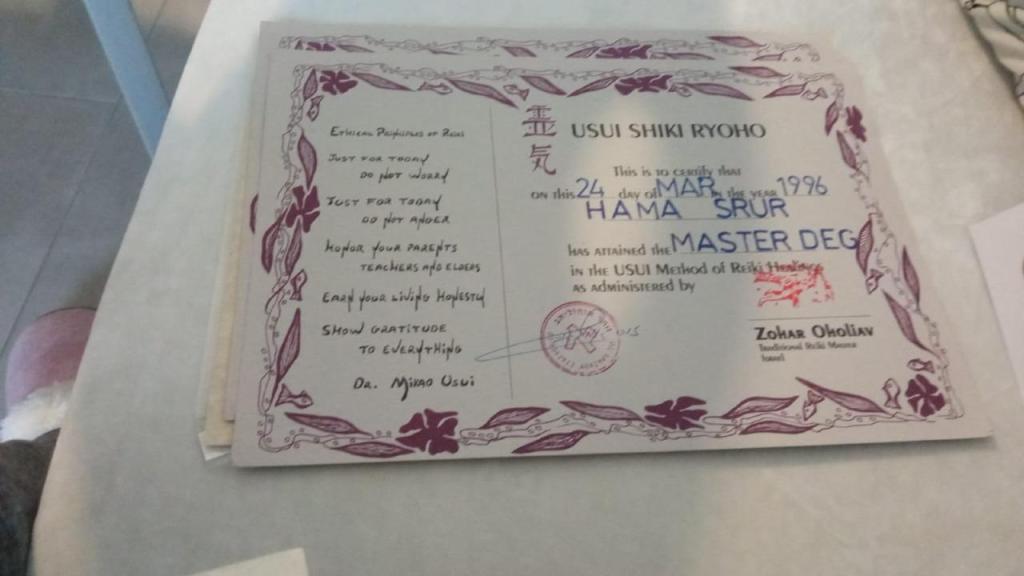 Ethical Principles of Reiki
Just for today
do not worry
Just for today
do not anger
Honor your parents
teachers and elders
Earn your living honestly
Show gratitude
to everything
Dr. Mikao Usui
霊
気
USUI SHIKI RYOHO
This is to certify that
on this 24 day of MAR in the year 1996
HAMA SRUR
has attained the MASTER DEG
in the USUI Method of Reiki Healing
as administered by
Zohar Oholiav
Traditional Reiki Master
Israel